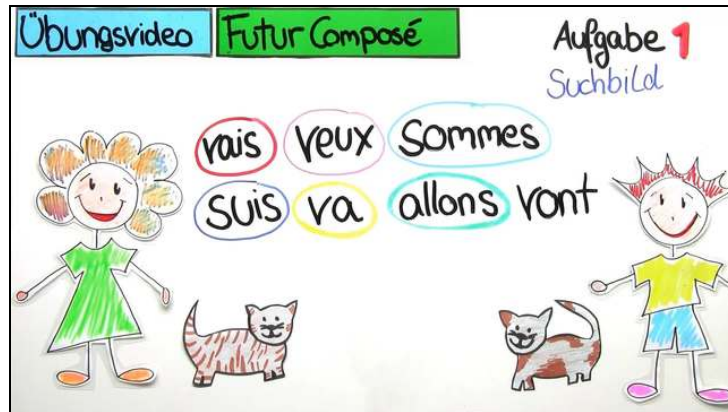 Übungsvideo
Futur Composé
Aufgabe 1
Suchbild
vais veux sommes
suis va allons vont